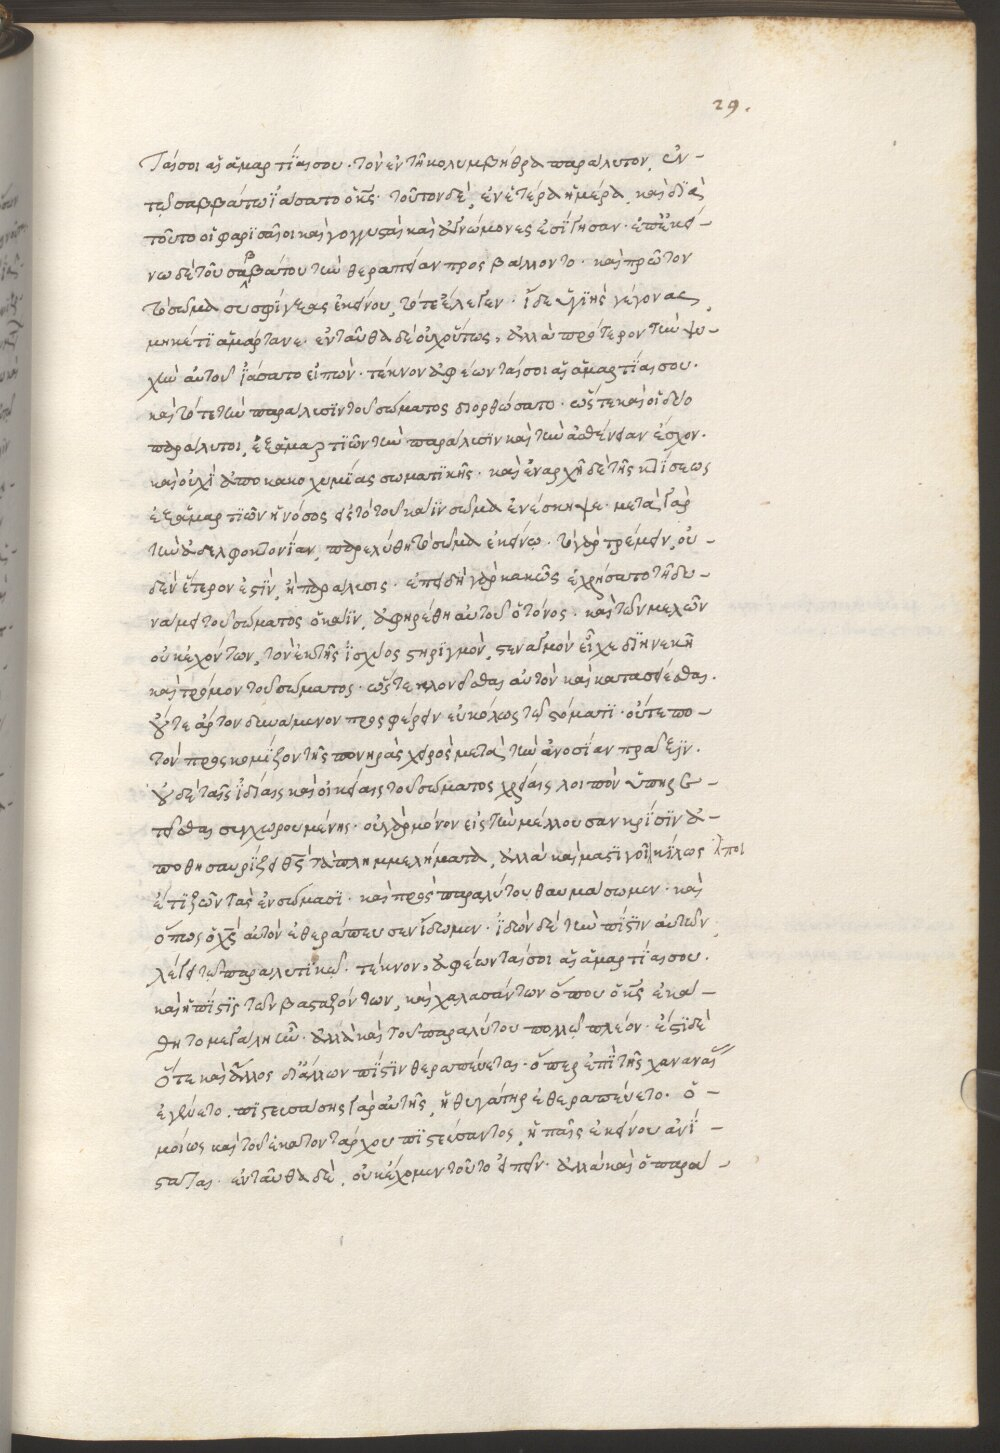 29.
ταί σοι αἱ ἁμαρτίαι σου· τὸν ἐν τῆ κολυμβήθρα παράλυτον, ἐν
τῷ σαββάτω ἰάσατο ὁ κ̅ς̅· τοῦτον δὲ, ἐν ἑτέρα ἡμέρα, καὶ διὰ
τοῦτο οἱ φαρισαῖοι καὶ γογγυσταὶ καὶ ἀγνώμονες ἐσίγησαν· ἐπ' ἐκεί-
νω δὲ τοῦ σαββάτου τὴν θεραπείαν προσβάλλοντο· καὶ πρῶτον
τὸ σῶμα συσφίγξας ἐκείνου, τότε ἔλεγεν· ἴδε ὑγιὴς γέγονας,
μηκέτι ἁμάρτανε· ἐνταῦθα δὲ οὐχ οὕτως, ἀλλὰ πρότερον τὴν ψυ-
χὴν αὐτοῦ ἰάσατο εἰπὼν· τέκνον ἀφέωνταί σοι αἱ ἁμαρτίαι σου·
καὶ τότε τὴν παράλυσιν τοῦ σώματος διορθώσατο· ὥστε καὶ οἱ δύο
παράλυτοι, ἐξ ἁμαρτιῶν τὴν παράλυσιν καὶ τὴν ἀσθένειαν ἔσχον·
καὶ οὐχὶ ἀπο κακοχυμίας σωματικῆς· καὶ ἐν ἀρχῆ δὲ τῆς κτίσεως
ἐξ ἁμαρτιῶν ἡ νόσος εἰς τὸ τοῦ κάϊν σῶμα ἐνέσκηψε· μετὰ γὰρ
τὴν ἀδελφοκτονίαν, παρελύθη τὸ σῶμα ἐκείνω· τὸ γὰρ τρέμειν, οὐ-
δὲν ἕτερον ἐστὶν, ἢ παράλυσις· ἐπειδὴ γὰρ κακῶς ἐχρήσατο τῆ δυ-
νάμει τοῦ σώματος ὁ κάϊν, ἀφηρέθη αὐτοῦ ὁ τόνος· καὶ τῶν μελῶν
οὐκ ἐχόντων, τὸν ἐκ τῆς ἰσχύος στηριγμὸν, στεναγμὸν εἶχε διηνεκῆ
καὶ τρόμον τοῦ σώματος· ὥστε κλονεῖσθαι αὐτὸν καὶ κατασείεσθαι·
μήτε ἄρτον δυνάμενον προσφέρειν εὐκόλως τῷ στόματι· οὔτε πο-
τὸν προσκομίζον τῆς πονηρᾶς χειρὸς μετὰ τὴν ἀνοσίαν πρᾶξιν·
οὐ δὲ ταῖς ἰδίαις καὶ οἰκείαις τοῦ σώματος χρείαις λοιπὸν ὑπηρε-
τεῖσθαι συγχωρουμένης· οὐ γὰρ μόνον εἰς τὴν μέλλουσαν κρίσιν ἀ-
ποθησαυρίζεσθαι τὰ πλημμελήματα, ἀλλὰ καὶ μαστιγοῖ κύκλως λποι
ἔτι ζῶντας ἐν σώμασι· καὶ πρὸς παραλύτου θαυμάσωμεν· καὶ
ὅπως ὁ χ̅ς̅ αὐτὸν ἐθεράπευσεν ἴδωμεν· ἰδὼν δὲ τὴν πίστιν αὐτῶν,
λέγει τῷ παραλυτικῷ· τέκνον, ἀφέωνταί σοι αἱ ἁμαρτίαι σου·
καὶ ἡ πίστις τῶν βασταζόντων, καὶ χαλασάντων ὅπου ὁ κ̅ς̅ ἐκά-
θητο μεγάλη ἦν· ἀλλὰ καὶ τοῦ παραλύτου πολλῷ πλέον· ἔστι δὲ
ὅτε καὶ ἄλλος δι' ἄλλων πίστιν θεραπεύεται· ὅπερ ἐπὶ τῆς χαναναί
ἐγένετο. πιστευσάσης γὰρ αὐτῆς, ἡ θυγάτηρ ἐθεραπεύετο· ὁ-
μοίως καὶ τοῦ ἑκατοντάρχου πιστεύσαντος, ἡ παῖς ἐκείνου ἀνί-
σταται· ἐνταῦθα δὲ, οὐκ ἔχομεν τοῦτο εἰπεῖν· ἀλλὰ καὶ ὁ παρά-